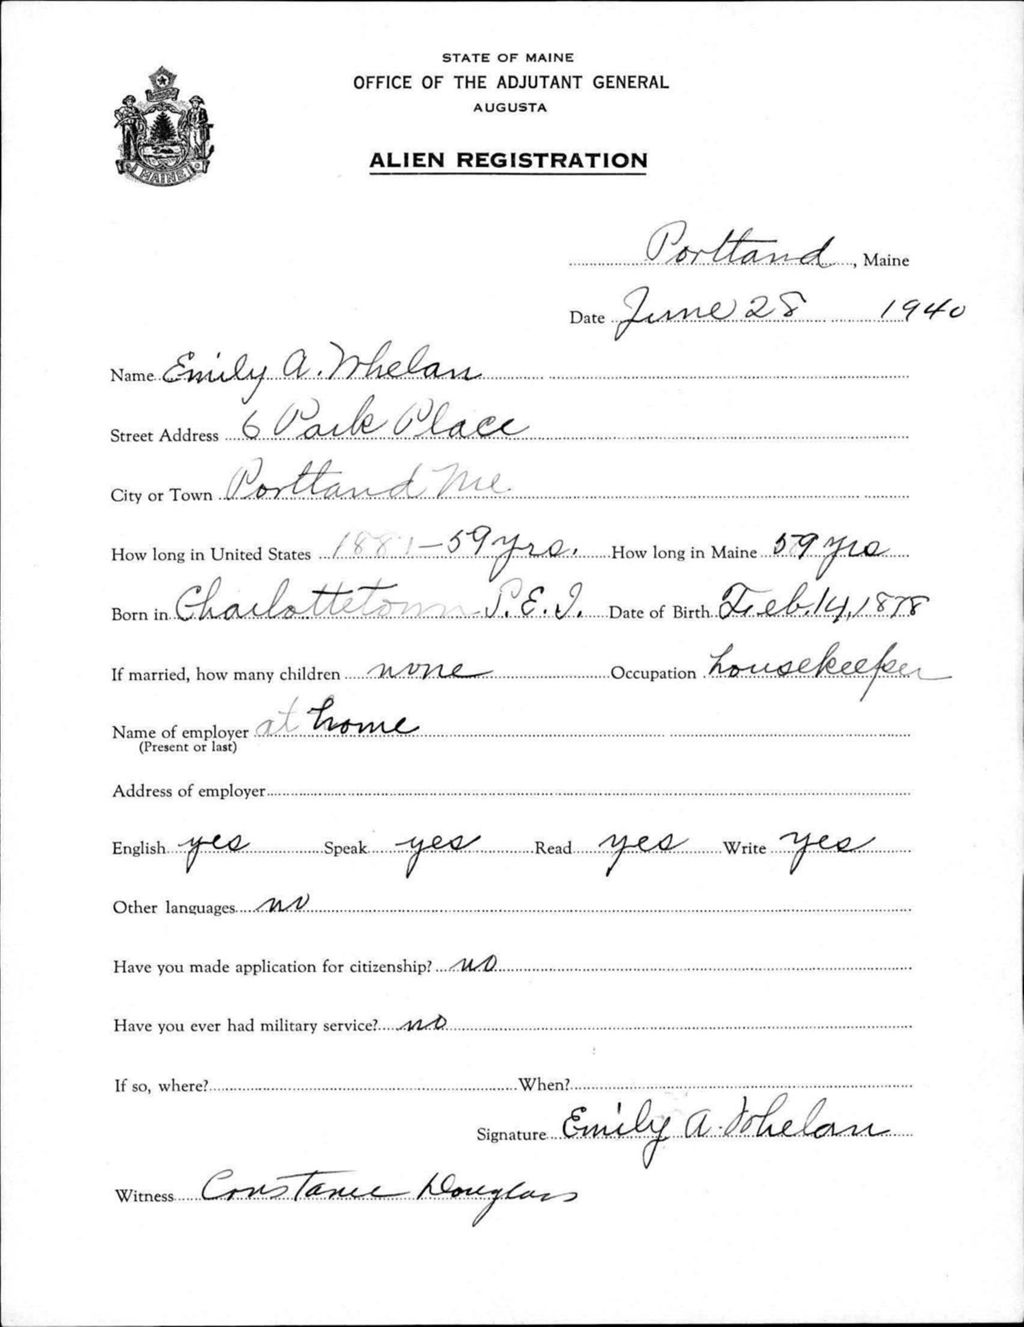 STATE OF MAINE
OFFICE OF THE ADJUTANT GENERAL
AUGUSTA
ALIEN REGISTRATION
MAINE
Portland, Maine
Date June 28 1940
Name Emily A. Whelan
Street Address 6 Park Place
City or Town Portland Me
How long in United States 1881-59 yrs. How long in Maine 59 yrs
Born in Charlottetown P.E.I. Date of Birth Feb. 14, 1878
If married, how many children none Occupation housekeeper
Name of employer at home
(Present or last)
Address of employer
English yes Speak yes Read yes Write yes
Other languages no
Have you made application for citizenship? no
Have you ever had military service? no
If so, where? When?
Signature Emily A. Whelan
Witness Constance Douglass